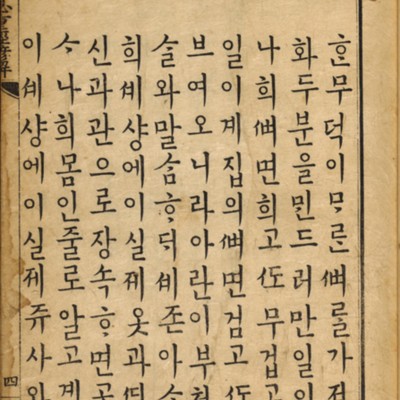 ᄒᆞᆫ무덕이ᄆᆞᄅᆞᆫᄲᅧ를가져
화두분을ᄆᆡᆫ드러만일
나희ᄲᅧ면희고ᄯᅩ무겁고
일이계집의ᄲᅧ면검고ᄯᅩ
브여오니라아란이부쳐
ᄉᆞᆯ와말ᄉᆞᆷᄒᆞᄃᆡ셰존아
희셰샹에이실제옷과ᄯᅴ
신과관으로장속ᄒᆞ면곳
ᄉᆞ나희몸인줄로알고계
이셰샹에이실제쥬사와
四